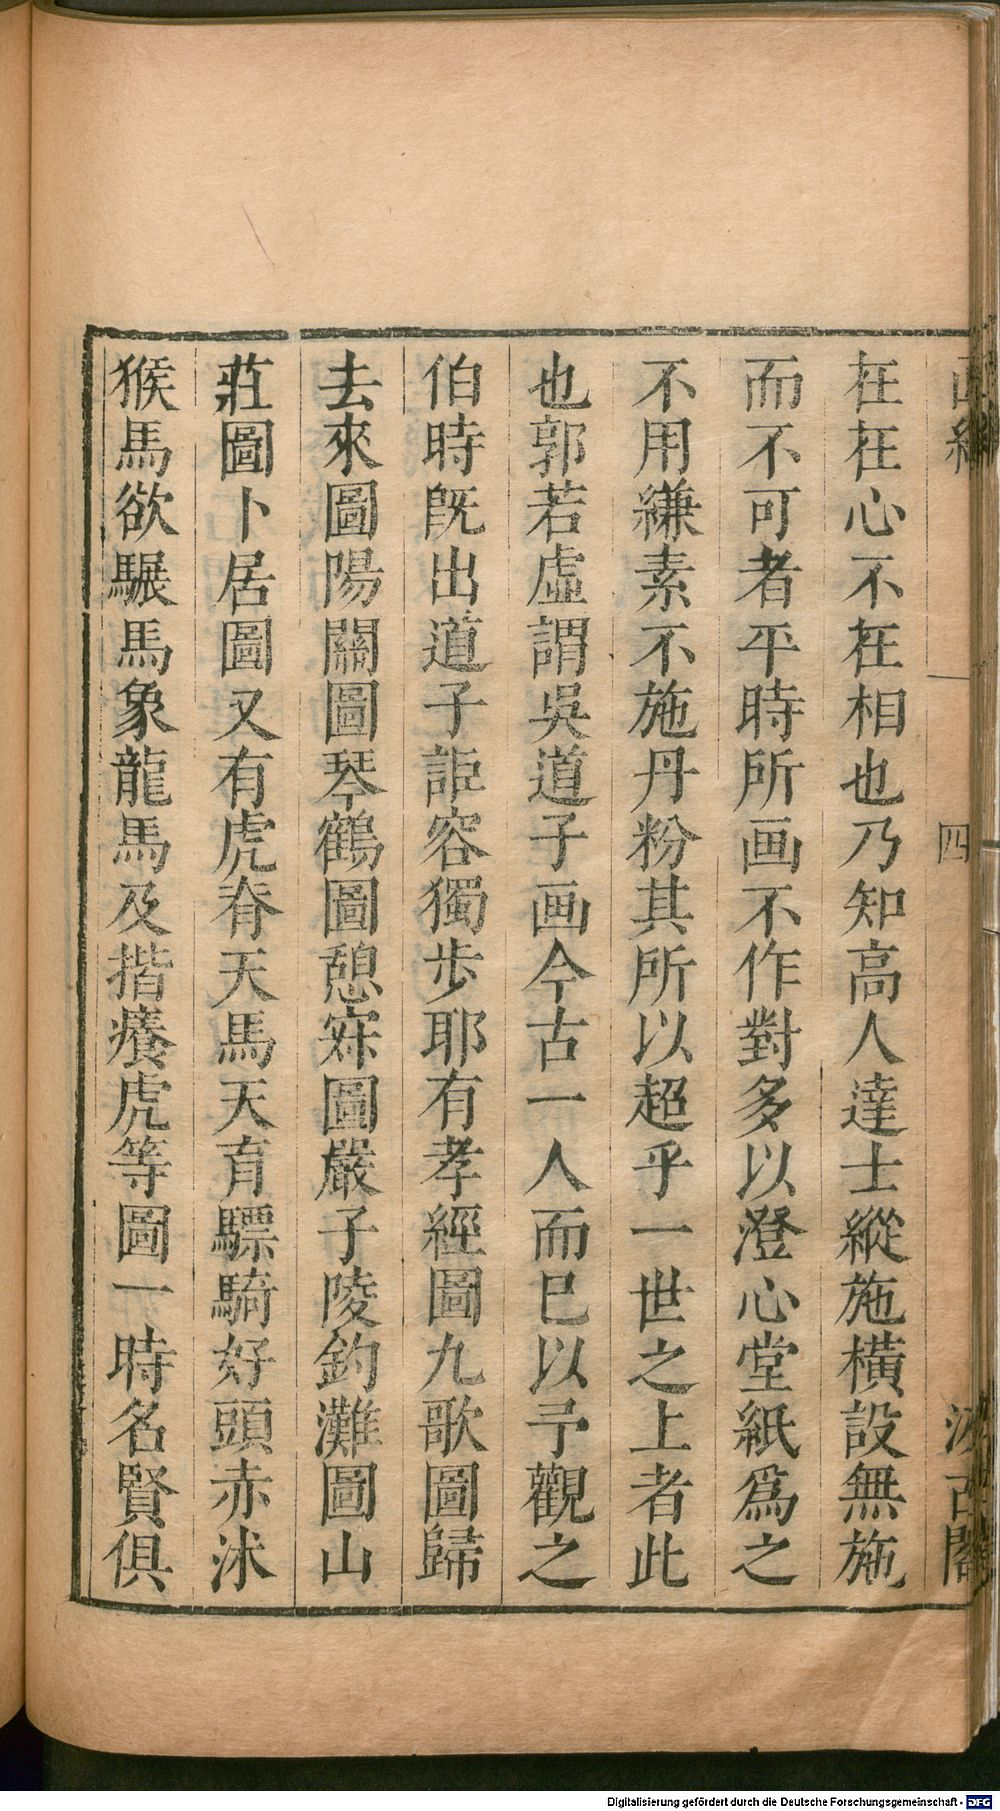 在在心不在相也乃知高人達士縱施橫設無施
而不可者平時所画不作對多以澄心堂紙爲之
不用縑素不施丹粉其所以超乎一世之上者此
也郭若虛謂吳道子画今古一人而已以予觀之
伯時旣出道子詎容獨步耶有孝經圖九歌圖歸
去來圖陽關圖琴鶴圖憩寂圖嚴子陵釣灘圖山
莊圖卜居圖又有虎脊天馬天育驃騎好頭赤沐
猴馬欲驟馬象龍馬及揩癢虎等圖一時名賢俱
四
汲古閣
Digitalisierung gefördert durch die Deutsche Forschungsgemeinschaft - DFG